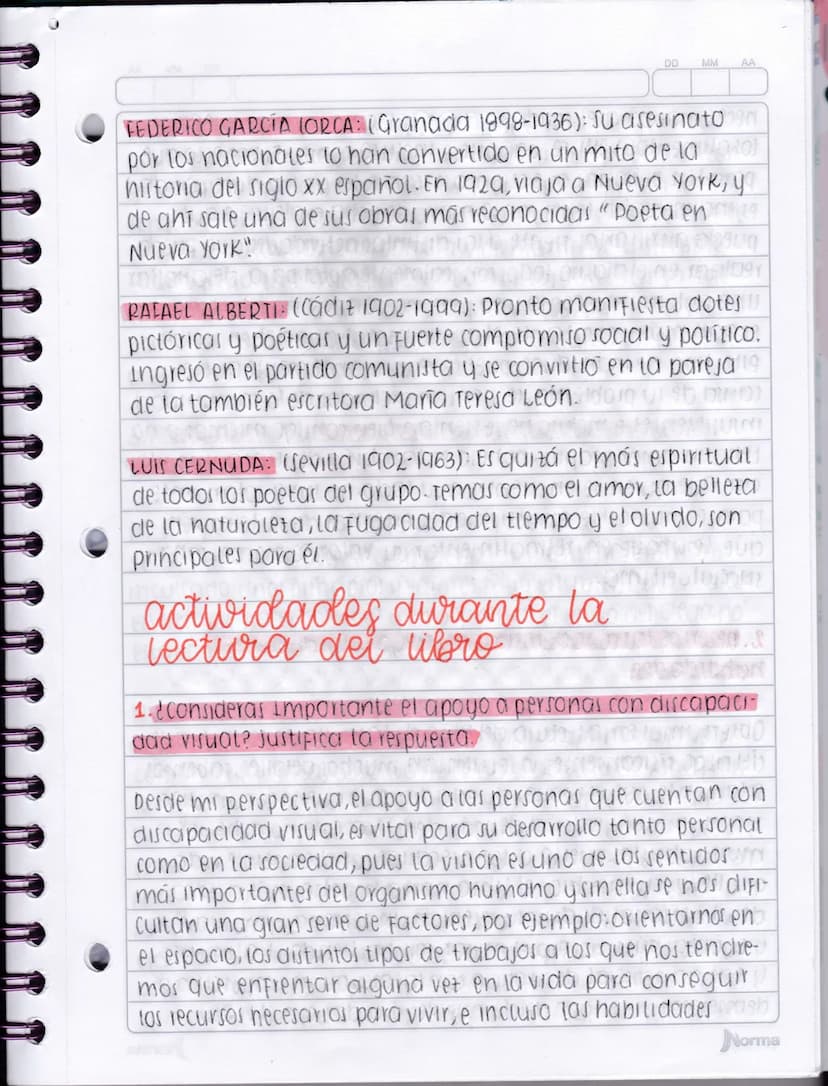 DD MM AA
FEDERICO GARCÍA LORCA: (Granada 1898-1936): Su asesinato
por los nacionales lo han convertido en un mito de la
historia del siglo XX español. En 1929, viaja a Nueva York, y
de ahí sale una de sus obras más reconocidas "Poeta en
Nueva York".
RAFAEL ALBERTI: (Cádiz 1902-1999): Pronto manifiesta dotes
pictóricas y poéticas y un fuerte compromiso social y político.
Ingresó en el partido comunista y se convirtió en la pareja
de la también escritora María Teresa León.
LUIS CERNUDA: (Sevilla 1902-1963): Es quizá el más espiritual
de todos los poetas del grupo. Temas como el amor, la belleza
de la naturaleza, la fugacidad del tiempo y el olvido, son
principales para él.
actividades durante la
lectura del libro
1. ¿Consideras importante el apoyo a personas con discapaci-
dad visual? Justifica la respuesta.
Desde mi perspectiva, el apoyo a las personas que cuentan con
discapacidad visual, es vital para su desarrollo tanto personal
como en la sociedad, pues la visión es uno de los sentidos
más importantes del organismo humano y sin ella se nos difi-
cultan una gran serie de factores, por ejemplo: orientarnos en
el espacio, los distintos tipos de trabajos a los que nos tendre-
mos que enfrentar alguna vez en la vida para conseguir
los recursos necesarios para vivir, e incluso las habilidades
Norma